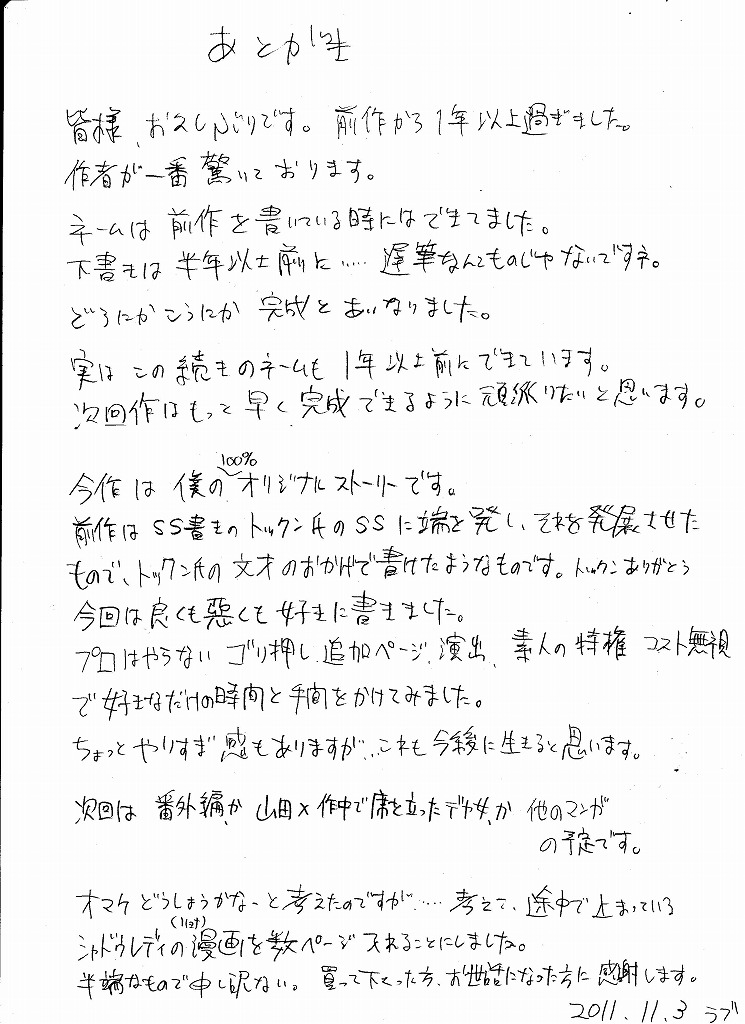 あとがき
皆様、お久しぶりです。前作から1年以上過ぎました。
作者が一番驚いております。
ネームは前作を書いている時にはできてました。
下書きは半年以上前に…… 遅筆なんてものじゃないですネ。
どうにかこうにか完成とあいなりました。
実はこの続きのネームも1年以上前にできています。
次回作はもって早く完成できるように頑張りたいと思います。
100%
今作は僕のオリジナルストーリーです。
前作はSS書きのトックン氏のSSに端を発し、それを発展させた
もので、トックン氏の文才のおかげで書けたようなものです。トックンありがとう
今回は良くも悪くも好きに書きました。
プロはやらないゴリ押し、追加ページ、演出、素人の特権 コスト無視
で好きなだけの時間と手間をかけてみました。
ちょっとやりすぎ感もありますが、これも今後に生きると思います。
次回は番外編か 山田×作中で席を立ったデカ女、か 他のマンガ
の予定です。
オマケどうしようかなーと考えたのですが…… 考えて、途中で止まっている
シャドウレディの漫画を数ページ入れることにしました。
半端なもので申し訳ない。買って下さった方、お世話になった方に感謝します。
2011.11.3 ラブ